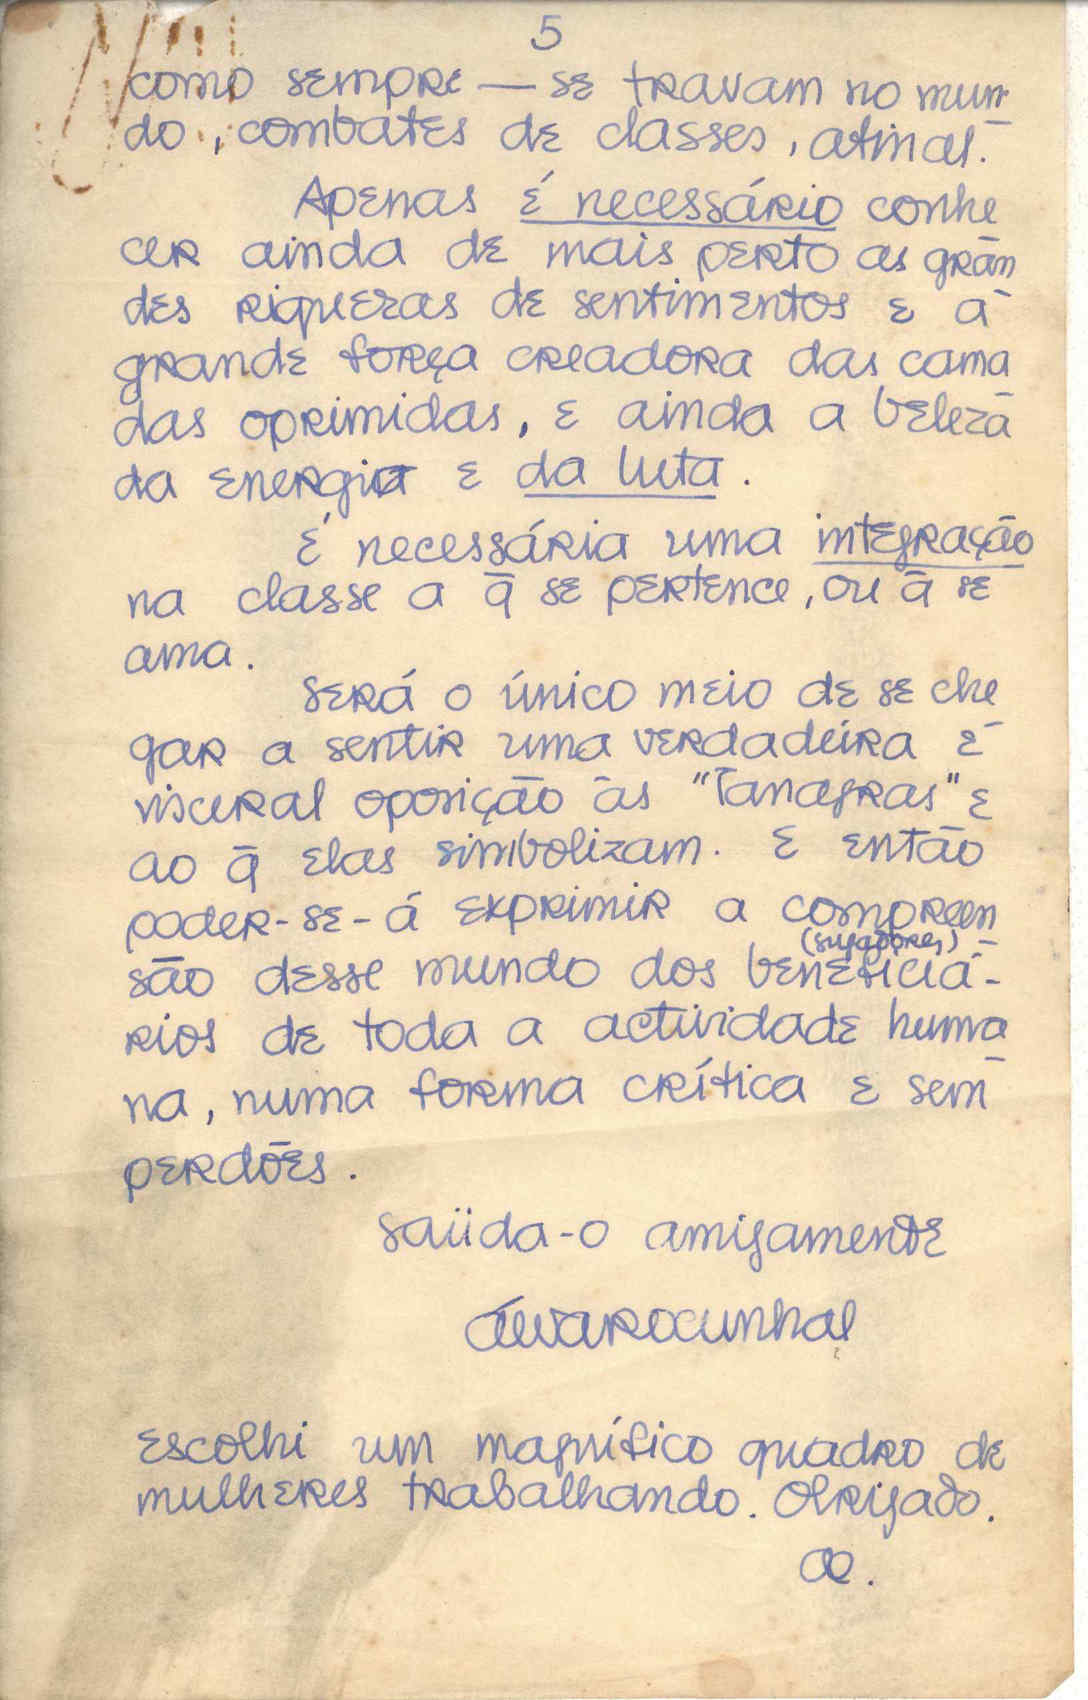 5
como sempre — se travam no mun-
do, combates de classes, afinal.
Apenas é necessário conhe
cer ainda de mais perto as gran
des riquezas de sentimentos e a
grande força creadora das cama
das oprimidas, e ainda a beleza
da energia e da luta.
É necessária uma integração
na classe a q̄ se pertence, ou q̄ se
ama.
Será o único meio de se che
gar a sentir uma verdadeira e
visceral oposição às "Tanagras" e
ao q̄ elas simbolizam. E então
poder-se-á exprimir a compreen
(sugadores)
são desse mundo dos beneficiá-
rios de toda a actividade huma
na, numa forma crítica e sem
perdões.
Saüda-o amigamente
Álvaro Cunhal
Escolhi um magnífico quadro de
mulheres trabalhando. Obrigado.
ac.